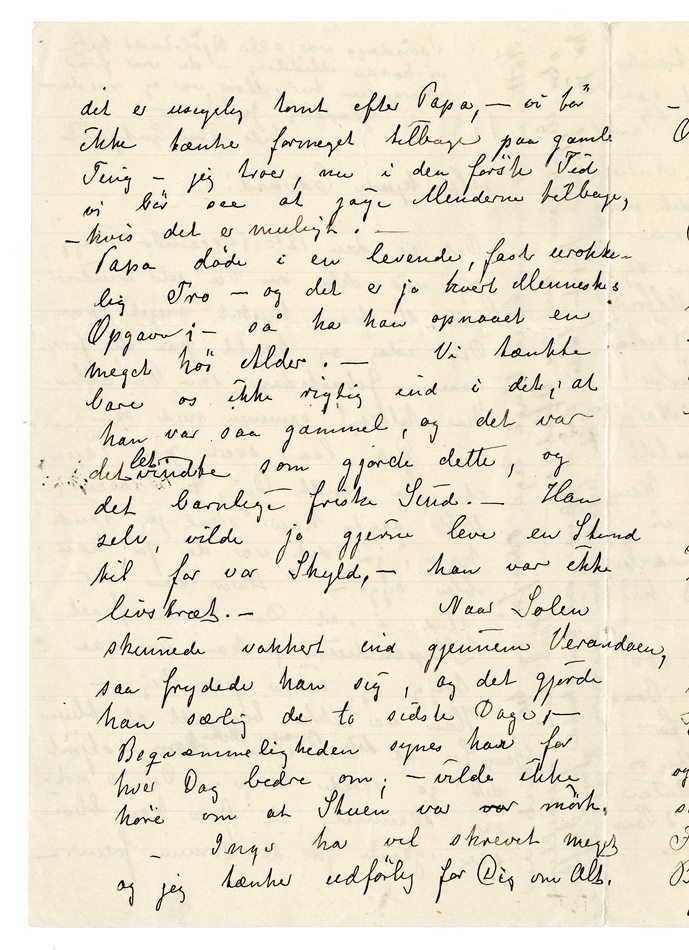 det er usigelig tomt efter Papa, – vi bør
ikke tænke formeget tilbage paa gamle
Ting – jeg troer, nu i den første Tid
vi bør see at jage Minderne tilbage,
– hvis det er muligt. –
Papa døde i en levende, fast urokke-
lig Tro – og det er jo hvert Menneskes
Opgave; – så ha han opnaaet en
meget høi Alder. – Vi tænkte
bare os ikke rigtig ind i det, at
han var saa gammel, og det var
det letvindte som gjorde dette, og
det barnlige friske Sind. – Han
selv, vilde jo gjerne leve en Stund
til for vor Skyld, – han var ikke
livstræt. – Naar Solen
skinnede vakkert ind gjennem Verandaen,
saa frydede han sig, og det gjorde
han særlig de to sidste Dage, –
Beqvæmmeligheden synes han for
hver Dag bedre om; – vilde ikke
høre om at Stuen var mørk.
– Inga ha vel skrevet meget
og jeg tænker udførlig for Dig om Alt.